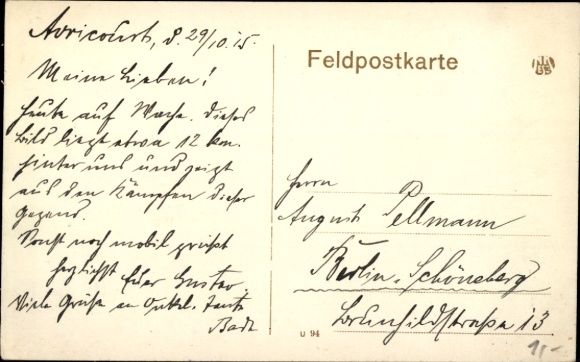 Avricourt, d. 29/10.15.
Meine Lieben!
Heute auf Wache. Dieses
Bild liegt etwa 12 km.
hinter uns und zeigt
aus den Kämpfen dieser
Gegend.
Sonst noch mobil grüßt
herzlichst Euer Gustav.
Viele Grüße an Onkel, Tante
Feldpostkarte
Herrn
August Pellmann
Berlin-Schöneberg
Brunhildstraße 13
u 94
1,-